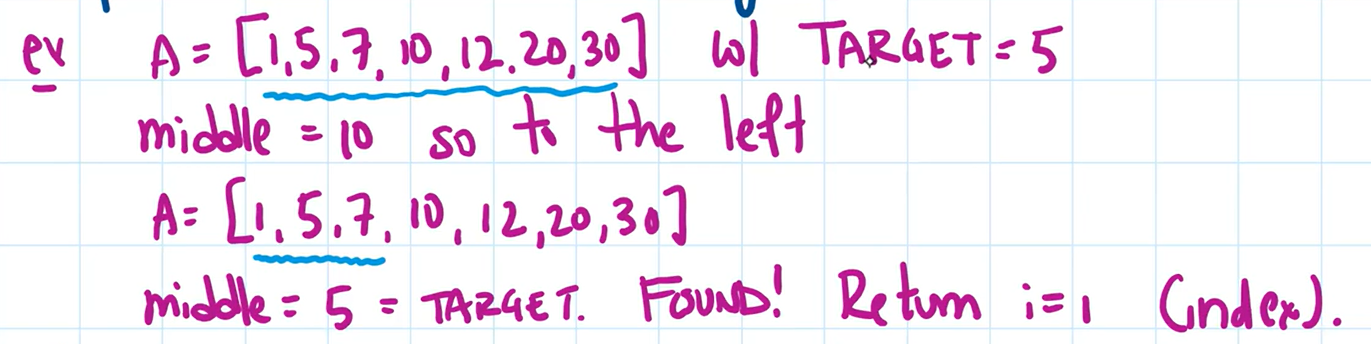 ex A = [1,5,7,10,12.20,30] w/ TARGET = 5
middle = 10 so to the left
A = [1,5,7,10,12,20,30]
middle = 5 = TARGET. FOUND! Return i=1 (index).